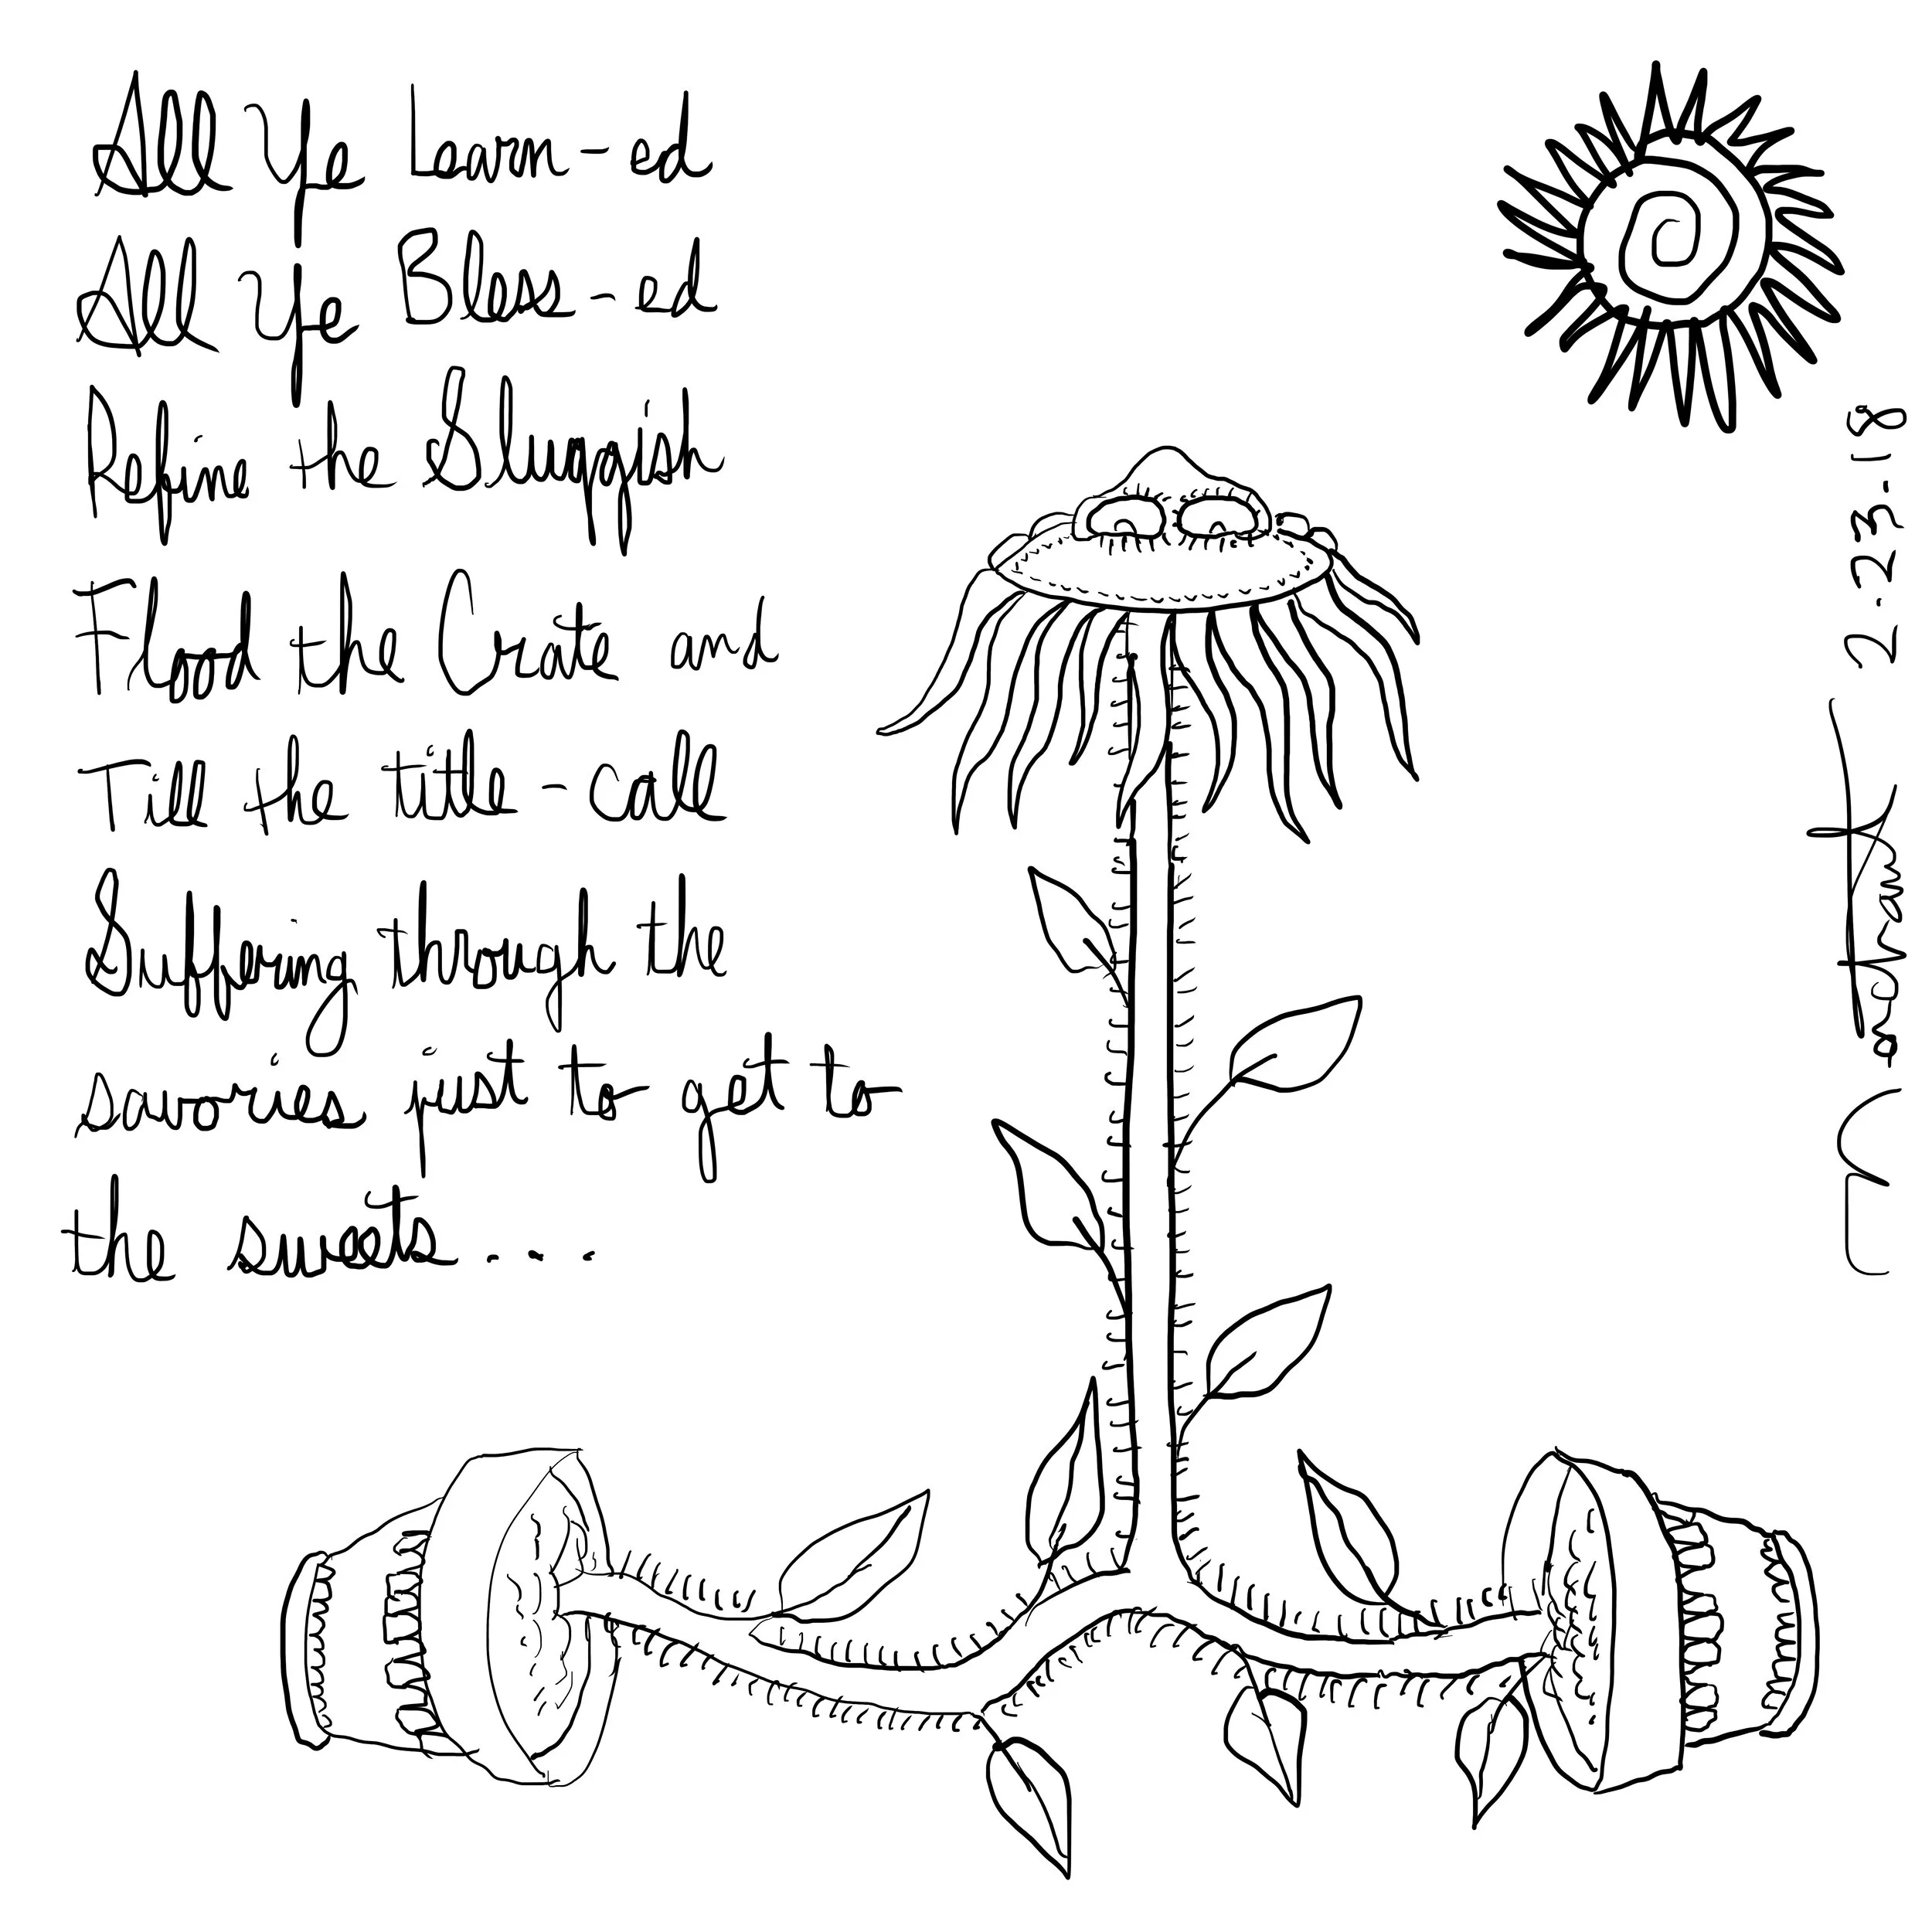 All Ye Learn-ed
All Ye Bless-ed
Refine the Sluggish
Flood the Crate and
Till the title-call
Suffering through the
savories just to get to
the sweets....
2.27-18